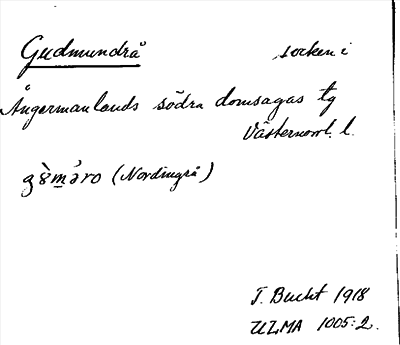 Gudmundrå socken i
Ångermanlands södra domsagas tg
Västernorrl. l.
(Nordingrå)
T. Bucht 1918
ULMA 1005:2.